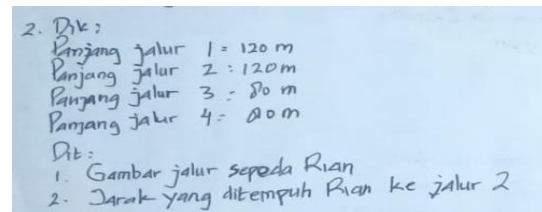 2. Dik :
Panjang jalur 1 = 120 m
Panjang jalur 2 : 120 m
Panjang jalur 3 = 80 m
Panjang jalur 4 = 80 m
Dit :
1. Gambar jalur sepeda Rian
2. Jarak yang ditempuh Rian ke jalur 2